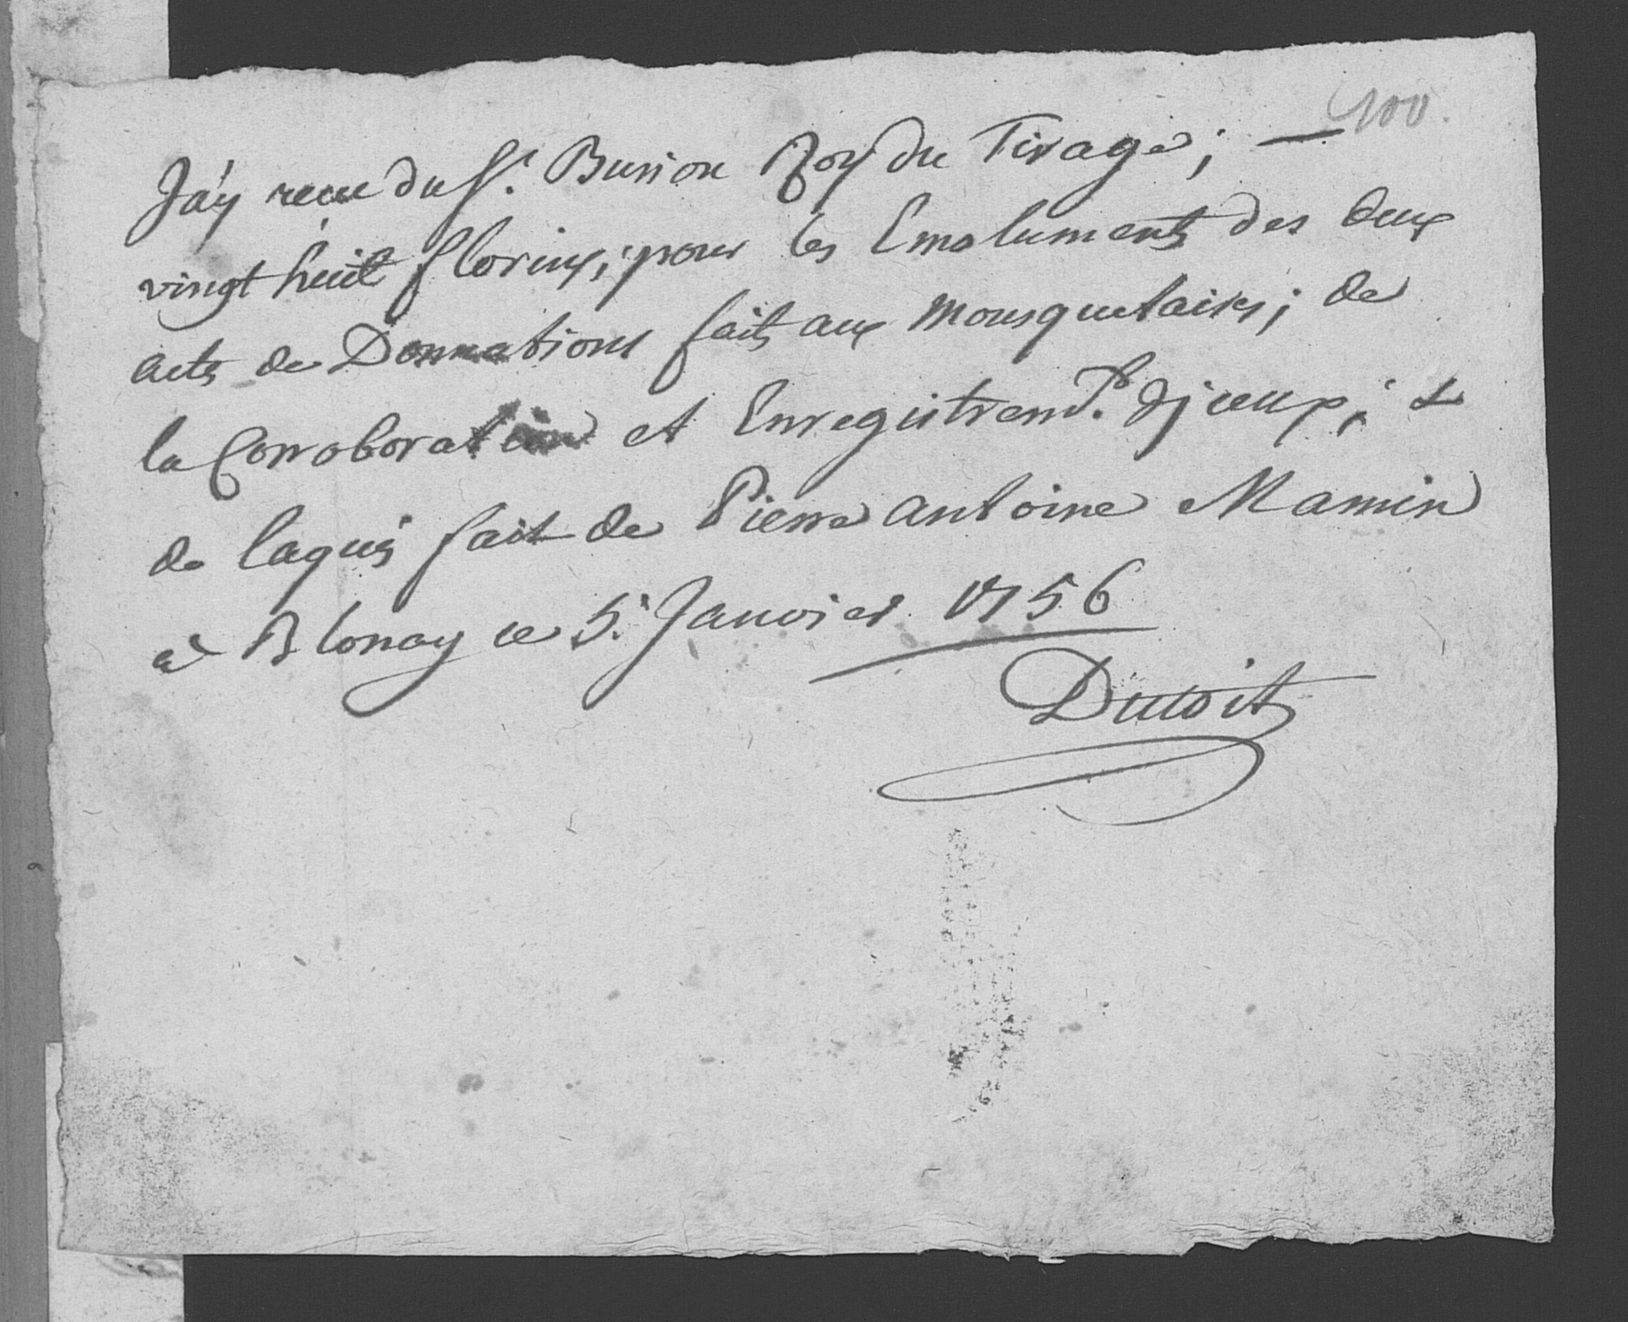 100.
Jáy recu du Sr. Burion Roy du Tirage; —
vingt huit florins, pour les Emoluments des deux
acts de Donnations faits aux Mousquetaires; de
la Corroboration et Enregistremt. d'jceux; &
de laquis fait de Pierre Antoine Mamin
a Blonay ce 5. Janvier 1756
Dutoit